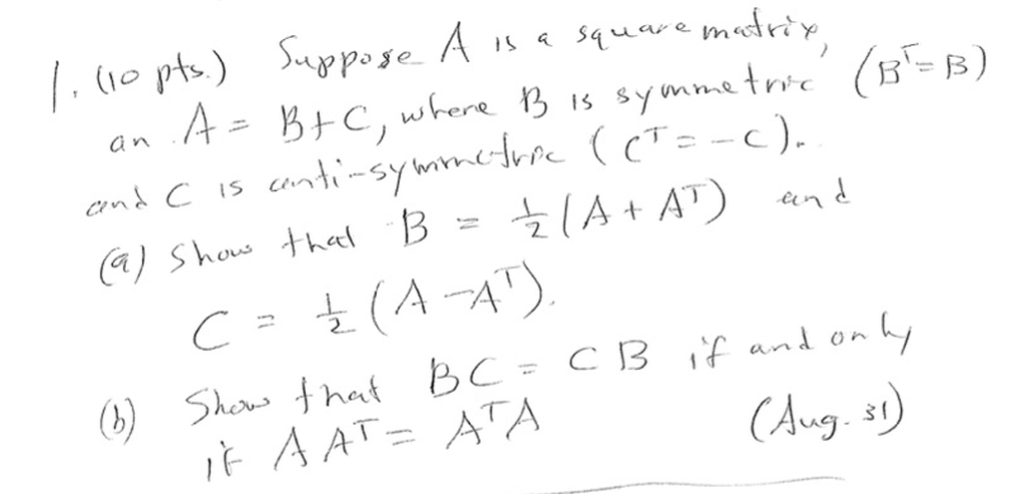 1. (10 pts.) Suppose A is a square matrix,
an A = B+C, where B is symmetric (Bᵀ=B)
and C is anti-symmetric (Cᵀ=-C).
(a) Show that B = ½(A + Aᵀ) and
C = ½(A-Aᵀ).
(b) Show that BC = CB if and only
if AAᵀ = AᵀA (Aug. 31)